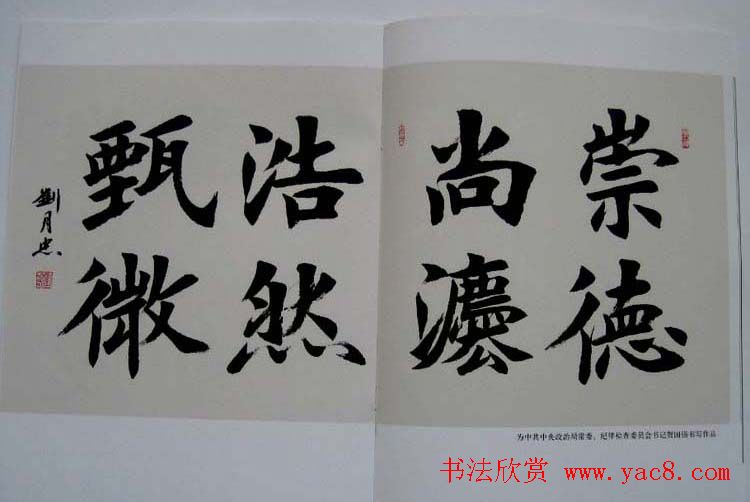 崇德
尚灋
浩然
甄微
劉月忠
为中共中央政治局常委、纪律检查委员会书记贺国强书写作品
书法欣赏 www.yac8.com